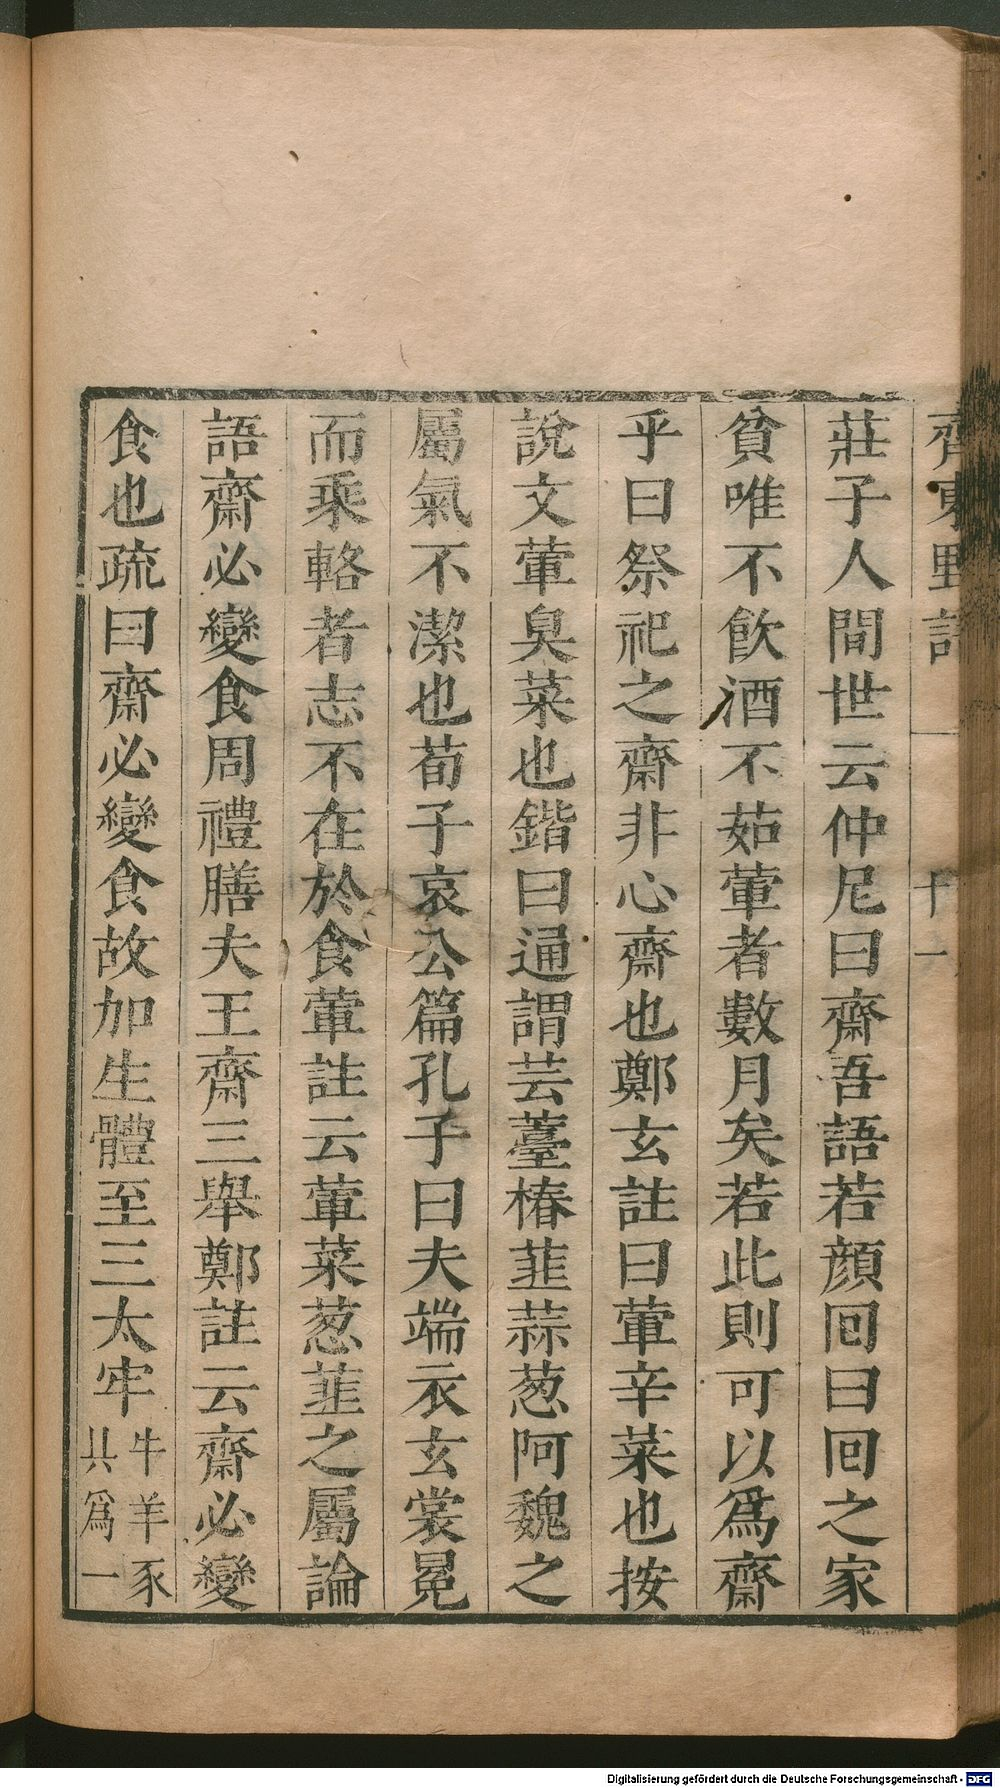 齊東野語 十一
莊子人間世云仲尼曰齋吾語若顏回曰回之家
貧唯不飲酒不茹葷者數月矣若此則可以爲齋
乎曰祭祀之齋非心齋也鄭玄註曰葷辛菜也按
說文葷臭菜也鍇曰通謂芸薹椿韮蒜葱阿魏之
屬氣不潔也荀子哀公篇孔子曰夫端衣玄裳冕
而乘輅者志不在於食葷註云葷菜葱韮之屬論
語齋必變食周禮膳夫王齋三舉鄭註云齋必變
食也疏曰齋必變食故加生體至三太牢
牛羊豕
具爲一
Digitalisierung gefördert durch die Deutsche Forschungsgemeinschaft - DFG